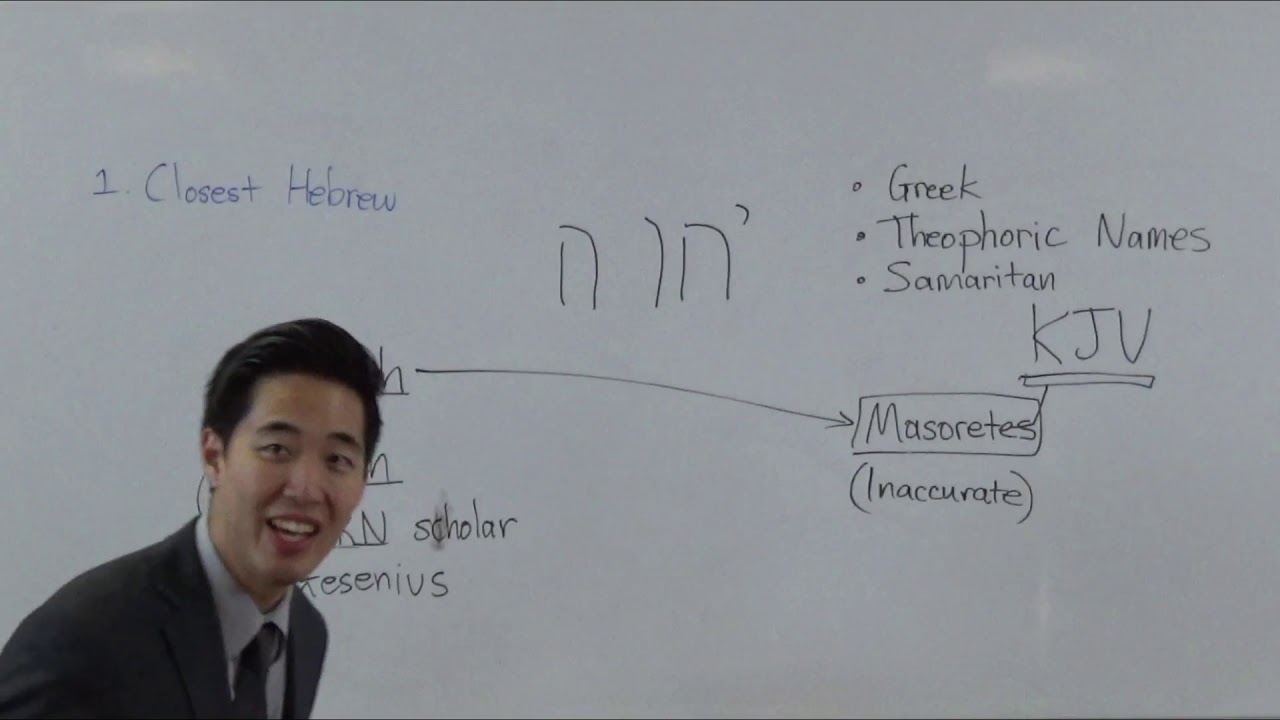 1. Closest Hebrew
יהוה
• Greek
• Theophoric Names
• Samaritan
KJV
Masoretes
(Inaccurate)
scholar
esenius